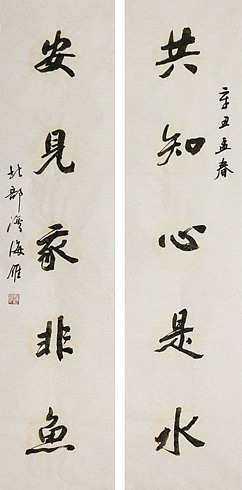 辛丑孟春
共知心是水
安見我非魚
北部灣海雁